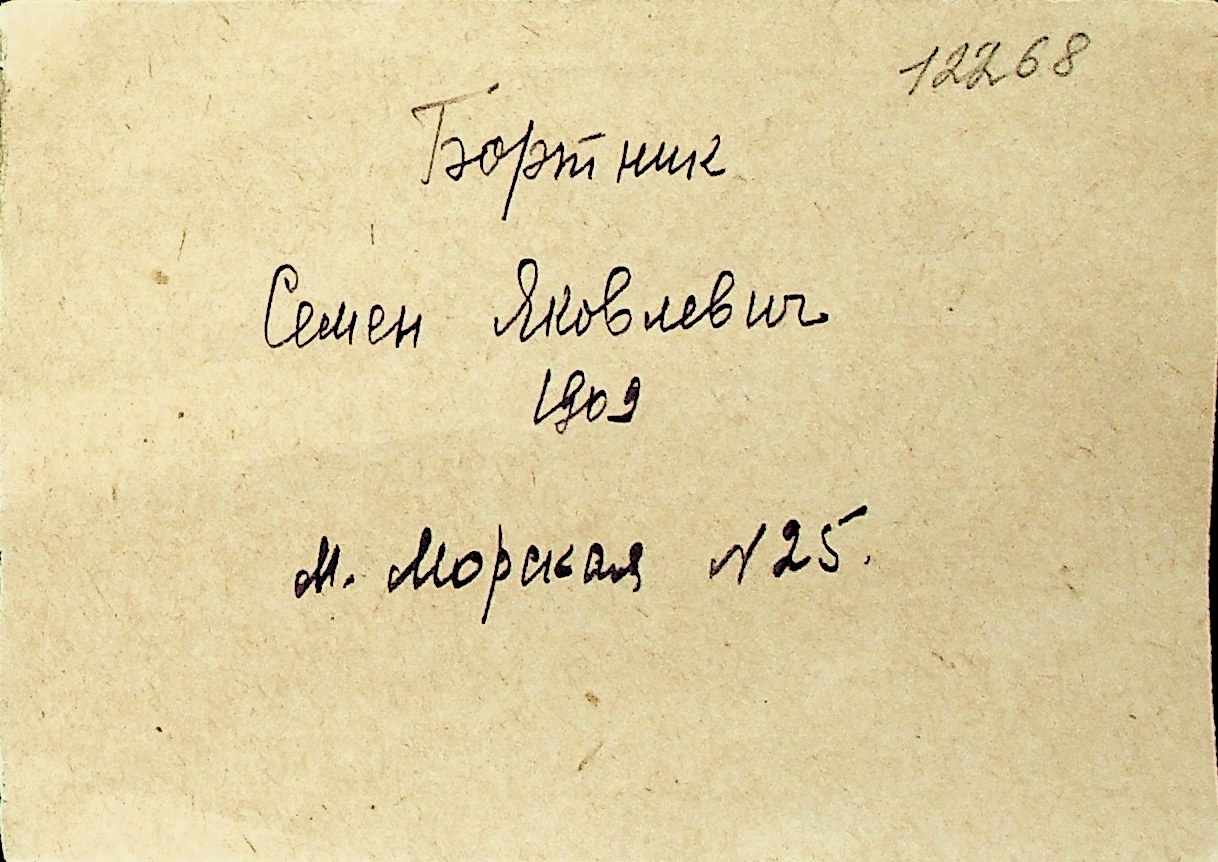 12268
Бортник
Семен Яковлевич
1909
М. Морская N 25.